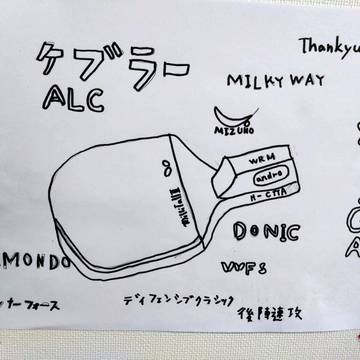 Thankyu
ケブラー
ALC
MILKY WAY
MIZUNO
WRM
andro
H-CTTA
DONIC
MONDO
VVFS
ナーフォース
ディフェンシブクラシック
後陣速攻